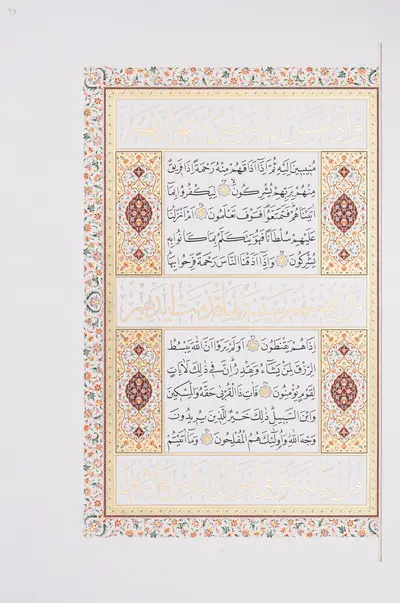 وَإِذَا مَسَّ النَّاسَ ضُرٌّ دَعَوْا رَبَّهُمْ
مُنِيبِينَ إِلَيْهِ ثُمَّ إِذَا أَذَاقَهُمْ مِنْهُ رَحْمَةً إِذَا فَرِيقٌ
مِنْهُمْ بِرَبِّهِمْ يُشْرِكُونَ ۝ لِيَكْفُرُوا بِمَا
آتَيْنَاهُمْ فَتَمَتَّعُوا فَسَوْفَ تَعْلَمُونَ ۝ أَمْ أَنْزَلْنَا
عَلَيْهِمْ سُلْطَانًا فَهُوَ يَتَكَلَّمُ بِمَا كَانُوا بِهِ
يُشْرِكُونَ ۝ وَإِذَا أَذَقْنَا النَّاسَ رَحْمَةً فَرِحُوا بِهَا
وَإِنْ تُصِبْهُمْ سَيِّئَةٌ بِمَا قَدَّمَتْ أَيْدِيهِمْ
إِذَا هُمْ يَقْنَطُونَ ۝ أَوَلَمْ يَرَوْا أَنَّ اللَّهَ يَبْسُطُ
الرِّزْقَ لِمَنْ يَشَاءُ وَيَقْدِرُ إِنَّ فِي ذَلِكَ لَآيَاتٍ
لِقَوْمٍ يُؤْمِنُونَ ۝ فَآتِ ذَا الْقُرْبَى حَقَّهُ وَالْمِسْكِينَ
وَابْنَ السَّبِيلِ ذَلِكَ خَيْرٌ لِلَّذِينَ يُرِيدُونَ
وَجْهَ اللَّهِ وَأُولَئِكَ هُمُ الْمُفْلِحُونَ ۝ وَمَا آتَيْتُمْ